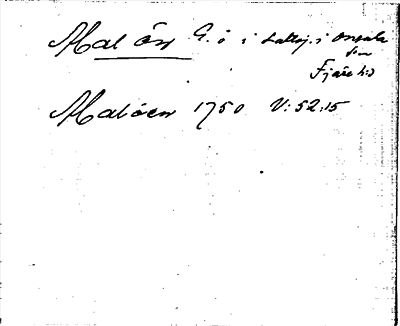 Mal ön G. ö i Saltsj. i Onsala
sn
Fjäre hd
Malöen 1750 V: 52:15